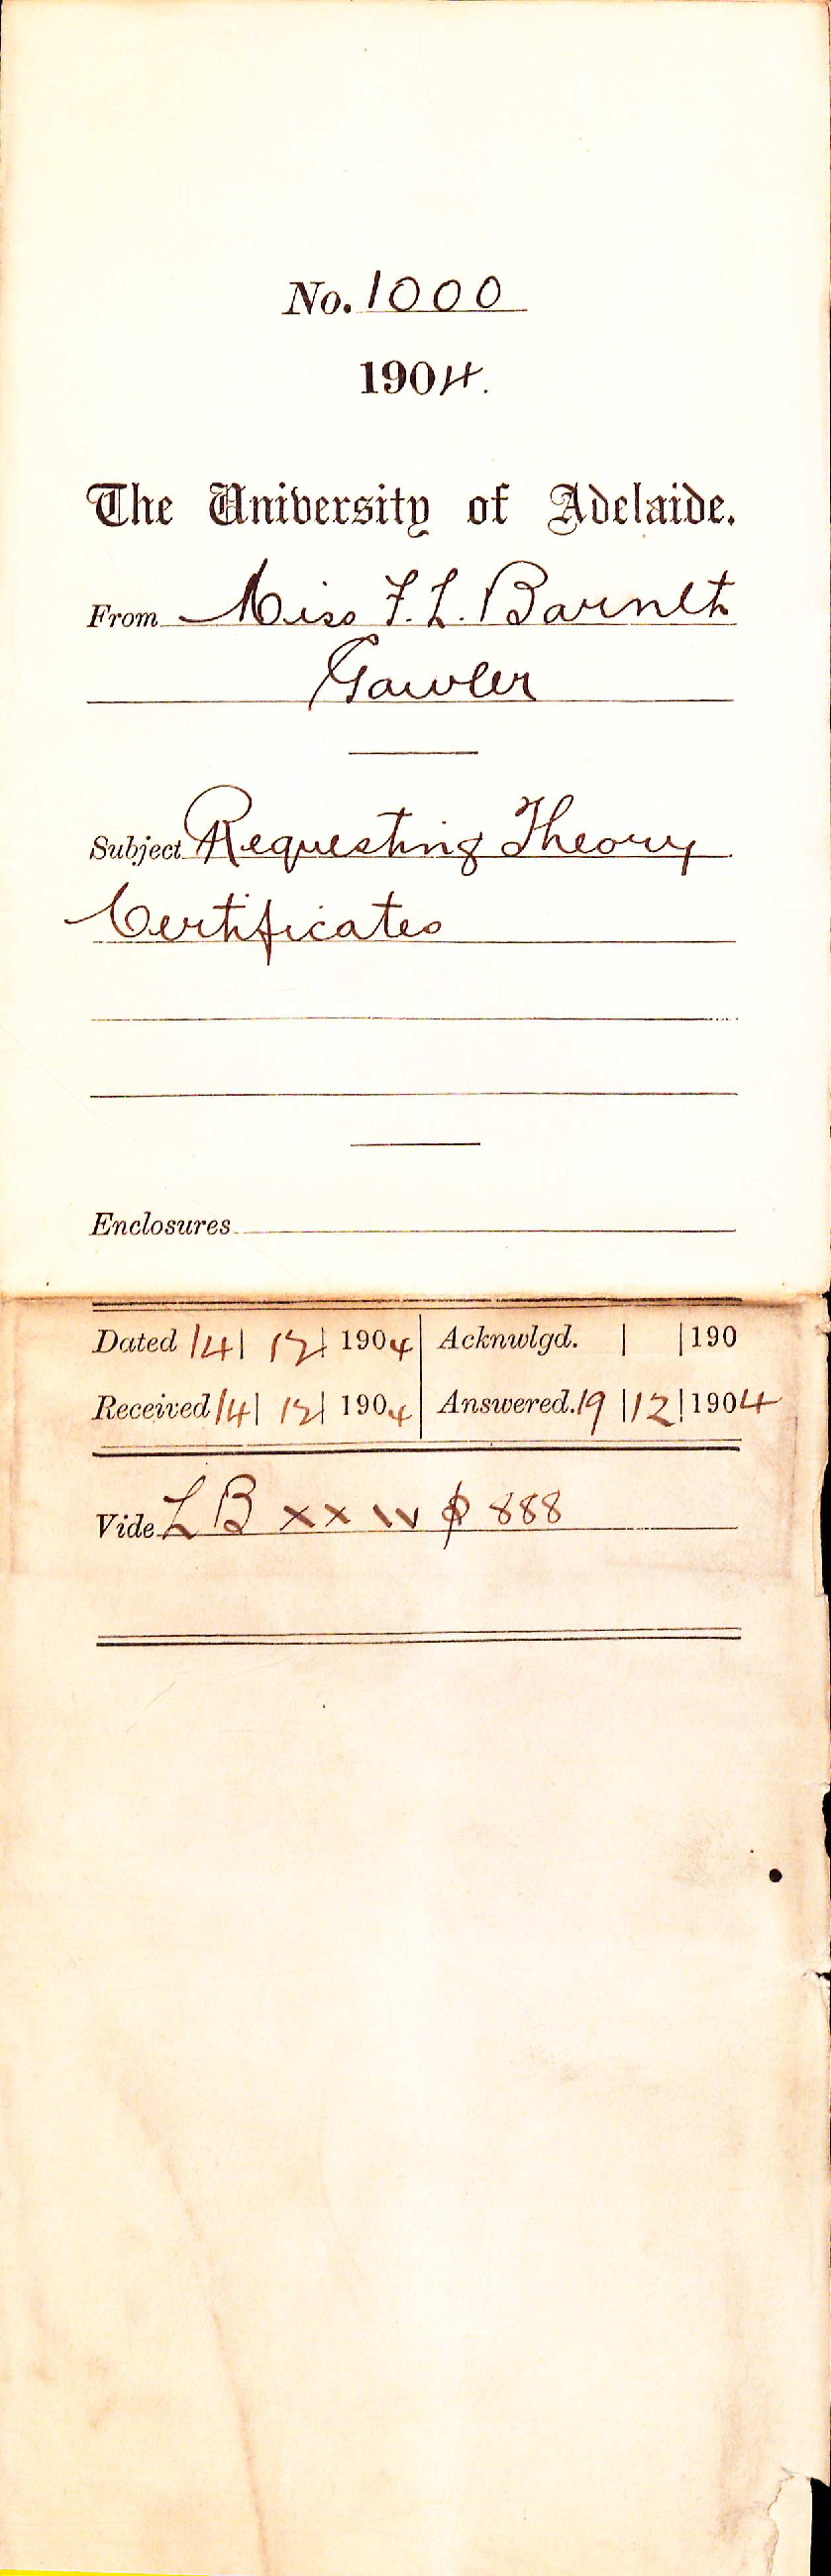 No. 1000
1904.
The University of Adelaide.
From Miss F. L. Barnet
Gawler
Subject Requesting Theory
Certificates
Enclosures
Dated 14| 12| 1904 | Acknwlgd. | |190
Received 14| 12| 1904 | Answered. 19 |12| 1904
Vide L B xx 888